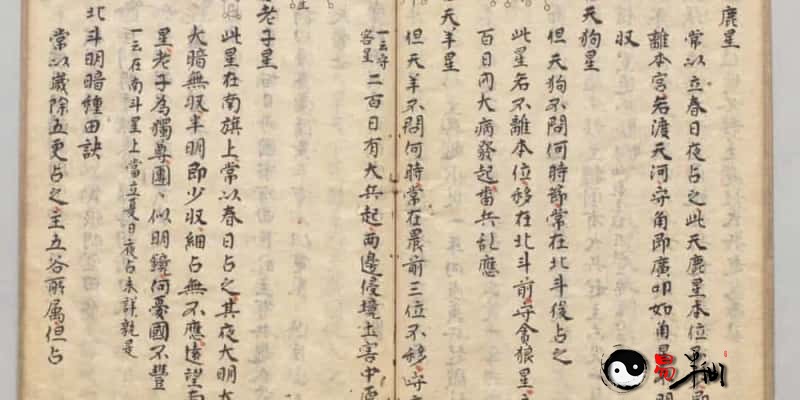 鹿星
常以立春日夜占之此天鹿星本位
離本宮若渡天河守角即廣卯如角星
収
天狗星
但天狗不問何時節常在北斗後占之
此星名不離本位移在北斗前守貪狼星
百日內大病發起畨兵乱應
天羊星
但天羊不問何時常在晨前三位不移守
一云守客星二百日有大兵起両邊侵境土害中
老子星
此星在南旗上常以春日占之其夜大明大
大暗無収半明即少収細占無不應遠望
星老子為獨尊團似明鏡何憂國不豐
一云在南斗星上當立夏日夜占未詳孰是
北斗明暗種田訣
常以歲除五更占之主五谷所属但占
易